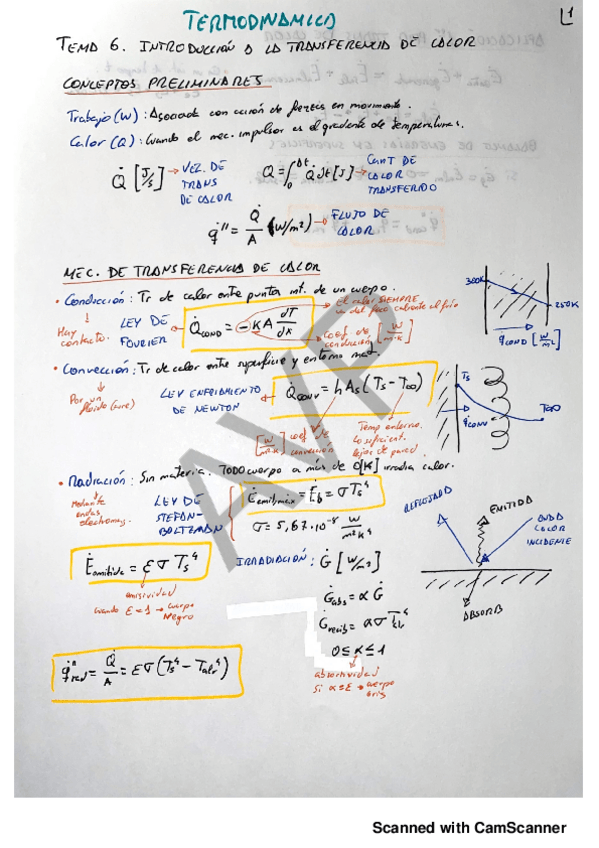 TERMODINÁMICA
1
TEMA 6. INTRODUCCIÓN A LA TRANSFERENCIA DE CALOR
CONCEPTOS PRELIMINARES
Trabajo (W): Asociada con acción de fuerzas en movimiento.
Calor (Q): Cuando el mec. impulsor es el gradiente de temperaturas.
Q̇ [J/s] → VEZ. DE TRANS DE CALOR
Q = ∫₀^Δt Q̇ dt [J] → CANT DE CALOR TRANSFERIDO
q̇'' = Q̇/A (W/m²) → FLUJO DE CALOR
MEC. DE TRANSFERENCIA DE CALOR
• Conducción: Tr de calor entre puntos int. de un cuerpo.
Hay contacto.
LEY DE FOURIER
Q̇cond = -KA dT/dx
El calor SIEMPRE va del foco caliente al frío
coef de conducción [W/m·K]
300K
250K
q̇cond [W/m²]
• Convección: Tr de calor entre superficie y entorno mat.
Por un fluido (aire)
LEY ENFRIAMIENTO DE NEWTON
Q̇conv = h As (Ts - T∞)
[W/m²·K] coef de convección
Temp entorno. Lo suficient. lejos de pared.
Ts
T∞
q̇conv
• Radiación: Sin materia. TODO cuerpo a más de 0[K] irradia calor.
Mediante ondas electromag.
LEY DE STEFAN-BOLTZMAN
Ėemit,max = Ėb = σ Ts⁴
σ = 5,67·10⁻⁸ W/m²K⁴
REFLEJADO
EMITIDA
ONDA CALOR INCIDENTE
ABSORB
Ėemitida = ε σ Ts⁴
emisividad
cuando ε = 1 → cuerpo negro
IRRADIACIÓN: Ġ [W/m²]
Ġabs = α Ġ
0 ≤ α ≤ 1
absortividad
si α = ε → cuerpo gris
q̇''rad = Q̇/A = εσ (Ts⁴ - Talr⁴)
AVP
Scanned with CamScanner